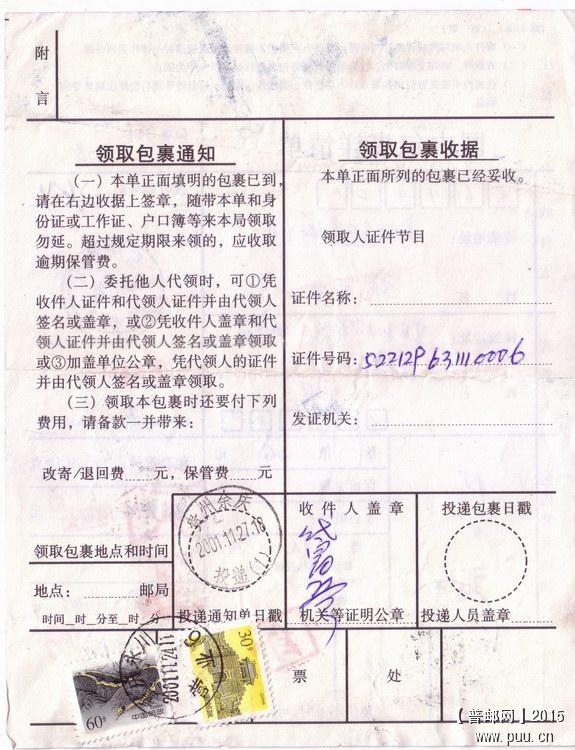 附言
领取包裹通知
(一)本单正面填明的包裹已到,
请在右边收据上签章,随带本单和身
份证或工作证、户口簿等来本局领取
勿延。超过规定期限来领的,应收取
逾期保管费。
(二)委托他人代领时,可①凭
收件人证件和代领人证件并由代领人
签名或盖章,或②凭收件人盖章和代
领人证件并由代领人签名或盖章领取
或③加盖单位公章,凭代领人的证件
并由代领人签名或盖章领取。
(三)领取本包裹时还要付下列
费用,请备款一并带来:
改寄/退回费......元,保管费......元
领取包裹收据
本单正面所列的包裹已经妥收。
领取人证件节目
证件名称:
证件号码:522129631110006
发证机关:
领取包裹地点和时间
地点:......邮局
时间__时__分至__时__分
贵州余庆
2001.11.27.18
投递(1)
投递通知单日戳
收件人盖章
机关等证明公章
投递包裹日戳
投递人员盖章
票 处
60分
中国邮政
30分
2001.11.24.11
【普邮网】2015
www.puu.cn